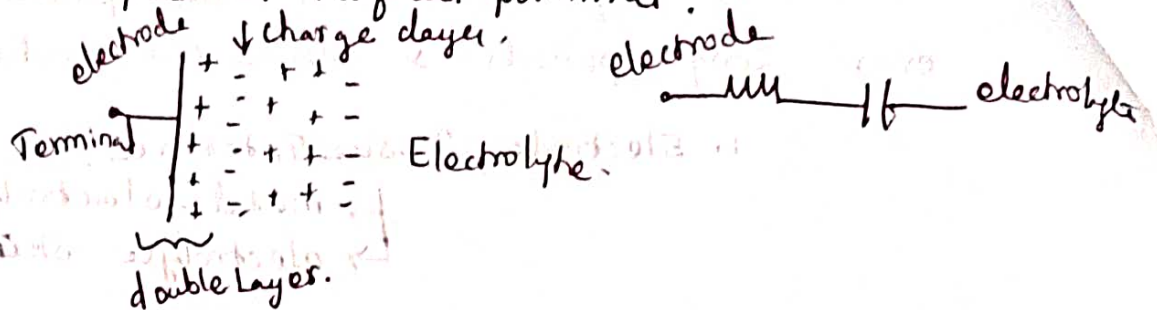 electrode ↓ charge layer.
electrode
electrolyte
Terminal
Electrolyte.
double Layer.